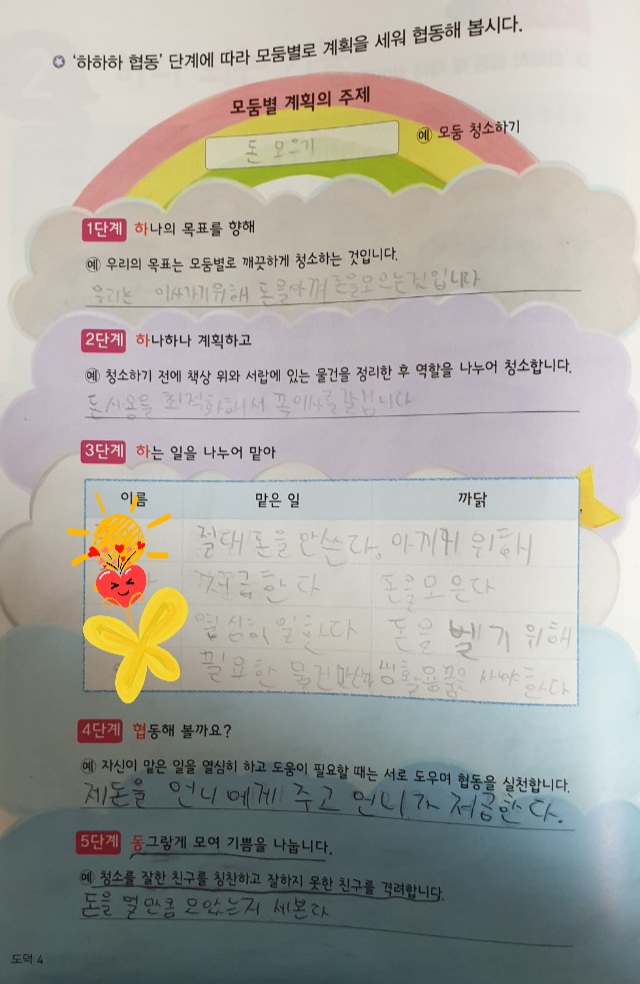 '하하하 협동' 단계에 따라 모둠별로 계획을 세워 협동해 봅시다.
모둠별 계획의 주제
돈 모으기
예 모둠 청소하기
1단계 하나의 목표를 향해
예 우리의 목표는 모둠별로 깨끗하게 청소하는 것입니다.
우리는 이사가기위해 돈을아껴 돈을모으는것입니다
2단계 하나하나 계획하고
예 청소하기 전에 책상 위와 서랍에 있는 물건을 정리한 후 역할을 나누어 청소합니다.
돈사용을 최적화해서 꼭이사를갈겁니다
3단계 하는 일을 나누어 맡아
이름 맡은 일 까닭
절대 돈을 안쓴다. 아끼기 위해
저금한다 돈을모은다
열심히 일한다 돈을 벌기 위해
필요한 물건만산다 생활용품은 사야한다
4단계 협동해 볼까요?
예 자신이 맡은 일을 열심히 하고 도움이 필요할 때는 서로 도우며 협동을 실천합니다.
제돈을 언니에게 주고 언니가 저금한다.
5단계 동그랗게 모여 기쁨을 나눕니다.
예 청소를 잘한 친구를 칭찬하고 잘하지 못한 친구를 격려합니다.
돈을 얼만큼 모았는지 세본다
도덕 4